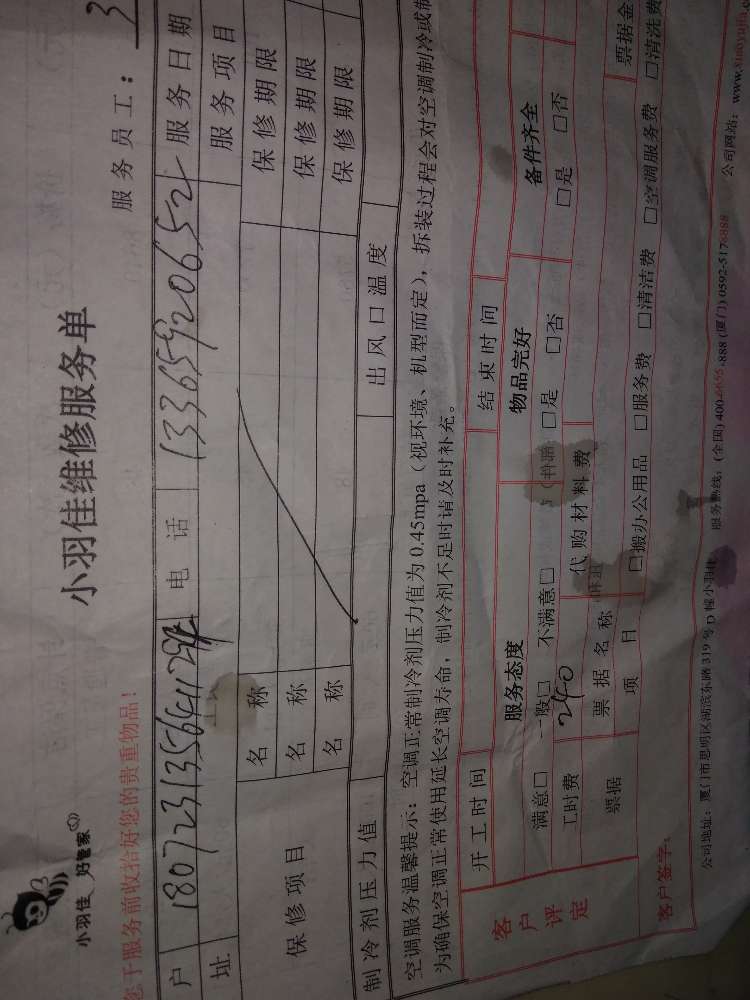 小羽佳 好管家
小羽佳维修服务单
您于服务前收拾好您的贵重物品!
服务员工:
户 电话 13365920652 服务日期
址 服务项目
保修项目
名称 保修期限
名称 保修期限
名称 保修期限
制冷剂压力值 出风口温度
空调服务温馨提示:空调正常制冷剂压力值为0.45mpa(视环境、机型而定),拆装过程会对空调制冷或制
为确保空调正常使用延长空调寿命,制冷剂不足时请及时补充。
开工时间 结束时间
客户评定
服务态度 物品完好 备件齐全
满意□ 一般□ 不满意□ □是 □否 □是 □否
工时费 240 代购材料费
票据 票据名称 票据金
项目 □搬办公用品 □服务费 □清洁费 □空调服务费 □清洗费
客户签字:
公司地址:厦门市思明区湖滨东路319号D幢小羽佳 服务热线:(全国)400-6656-888 (厦门)0592-5178888 公司网站:www.xiaoyujia.c